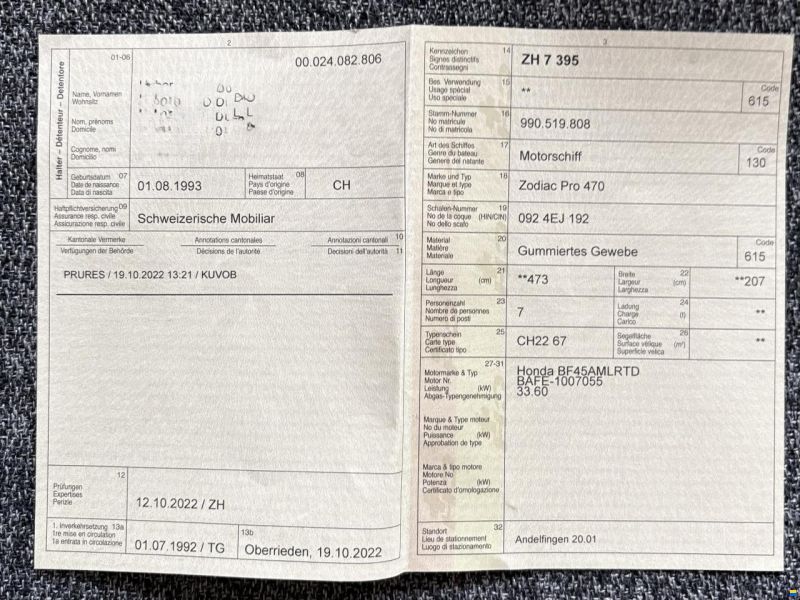 2
01-06
00.024.082.806
Halter – Détenteur – Detentore
Name, Vornamen
Wohnsitz
Nom, prénoms
Domicile
Cognome, nomi
Domicilio
Geburtsdatum 07
Date de naissance
Data di nascita
01.08.1993
Heimatstaat 08
Pays d'origine
Paese d'origine
CH
Haftpflichtversicherung 09
Assurance resp. civile
Assicurazione resp. civile
Schweizerische Mobiliar
Kantonale Vermerke Annotations cantonales Annotazioni cantonali 10
Verfügungen der Behörde Décisions de l'autorité Decisioni dell'autorità 11
PRURES / 19.10.2022 13:21 / KUVOB
12
Prüfungen
Expertises
Perizie
12.10.2022 / ZH
1. Inverkehrsetzung 13a
1re mise en circulation
1a entrata in circolazione
01.07.1992 / TG
13b
Oberrieden, 19.10.2022
3
Kennzeichen 14
Signes distinctifs
Contrassegni
ZH 7 395
Bes. Verwendung 15
Usage spécial
Uso speciale
**
Code
615
Stamm-Nummer 16
No matricule
No di matricola
990.519.808
Art des Schiffes 17
Genre du bateau
Genere del natante
Motorschiff
Code
130
Marke und Typ 18
Marque et type
Marca e tipo
Zodiac Pro 470
Schalen-Nummer 19
No de la coque (HIN/CIN)
No dello scafo
092 4EJ 192
Material 20
Matière
Materiale
Gummiertes Gewebe
Code
615
Länge 21
Longueur (cm)
Lunghezza
**473
Breite 22
Largeur (cm)
Larghezza
**207
Personenzahl 23
Nombre de personnes
Numero di posti
7
Ladung 24
Charge (t)
Carico
**
Typenschein 25
Carte type
Certificato tipo
CH22 67
Segelfläche 26
Surface vélique (m²)
Superficie velica
**
27-31
Motormarke & Typ
Motor Nr.
Leistung (kW)
Abgas-Typengenehmigung
Honda BF45AMLRTD
BAFE-1007055
33.60
Marque & Type moteur
No du moteur
Puissance (kW)
Approbation de type
Marca & tipo motore
Motore No
Potenza (kW)
Certificato d'omologazione
Standort 32
Lieu de stationnement
Luogo di stazionamento
Andelfingen 20.01